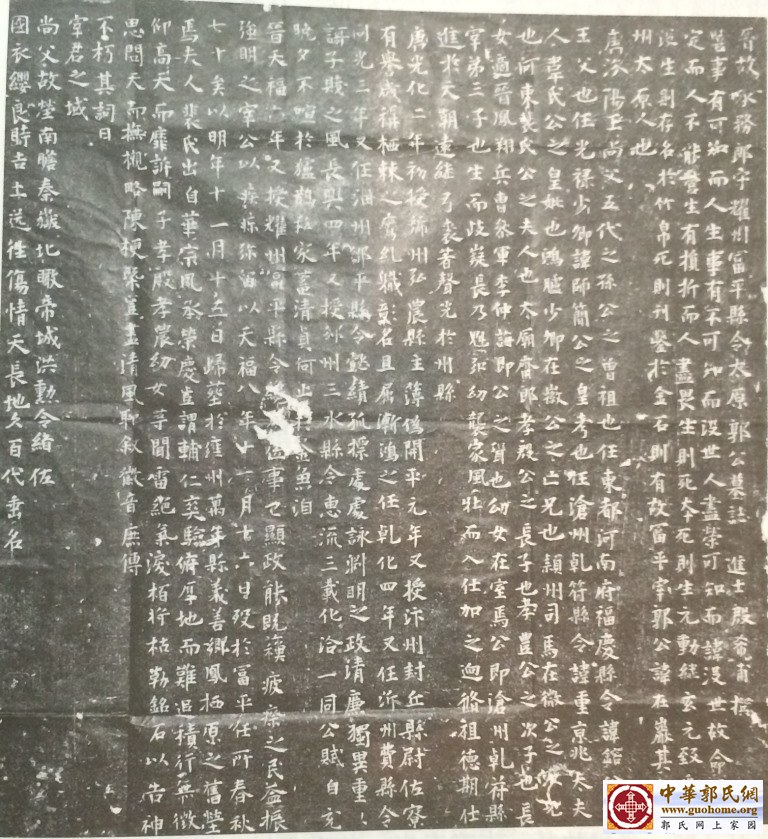 晋故承務郎守耀州富平縣令太原郭公墓誌 進士殷
警事有可知而人生事有不可知而没世人盡榮可知而諱没世故命
定而人不能警生有損折而人盡畏生則死本死則生元動継玄元致
没生則存名於竹帛死則刊鑒於金石則有故富平宰郭公諱在巖其
州太原人也
唐汾陽王尚父五代之孫公之曾祖也任東都河南府福慶縣令諱鉛
王父也任光禄少卿諱師簡公之皇考也任滄州乹符縣令諱重京兆太夫
人韋氏公之皇妣也鴻臚少卿在徵公之亡兄也潁州司馬在徽公之
也河東裴氏公之夫人也太廟齋郎孝殷公之長子也孝豊公之次子也長
女適晉鳳翔兵曹叅軍李仲誨即公之聟也幼女在室焉公即滄州乹符縣
宰弟三子也生而歧嶷長乃幼龔家風壮而入仕加之迥務祖德期仕
進於天朝遠継乃裘着聲光於州縣
唐光化二年初授弘農縣主簿偽開平元年又授汴州封丘縣尉佐寮
有譽咸稱栖棘之糺職彰名且屬漸鴻之任乹化四年又任沂州費縣令
同光三年又任淄州鄒平縣令懿績孤摽處處詠淵明之政清廉獨異重
謌子賤之風長興四年又授邠州三水縣令惠流三載化洽一同公賦自充
晥夕不喧於私家蓋清貞何金魚洎
晋天福年又授耀州富平縣令事卫顯政能旣穫疲瘵之民益振
強明之宰公以疾弥留以天福八年十一月十六日殁於富平任所春秋
七十矣以明年十一月十五日歸葬於雍州萬年縣義善鄉鳳栖原之舊塋
焉夫人裴氏出自華宗風承榮慶豈謂輔仁爽驗癖厚地而難追積行無徵
仰高天而靡訴嗣子孝殷孝農幼女等聞雷絶氣淚栢將枯勒銘石以告神
思問天而撫櫬略陳梗槩蓋清風聊叙徽音庶傳
不朽其詞曰
宰君之域
尚父故塋南瞻秦嶺北瞰帝城洪勲令緒佐
國衣纓良時吉土送往傷情天長地久百代垂名
中華郭氏網
www.guohome.org
郭氏網上家园